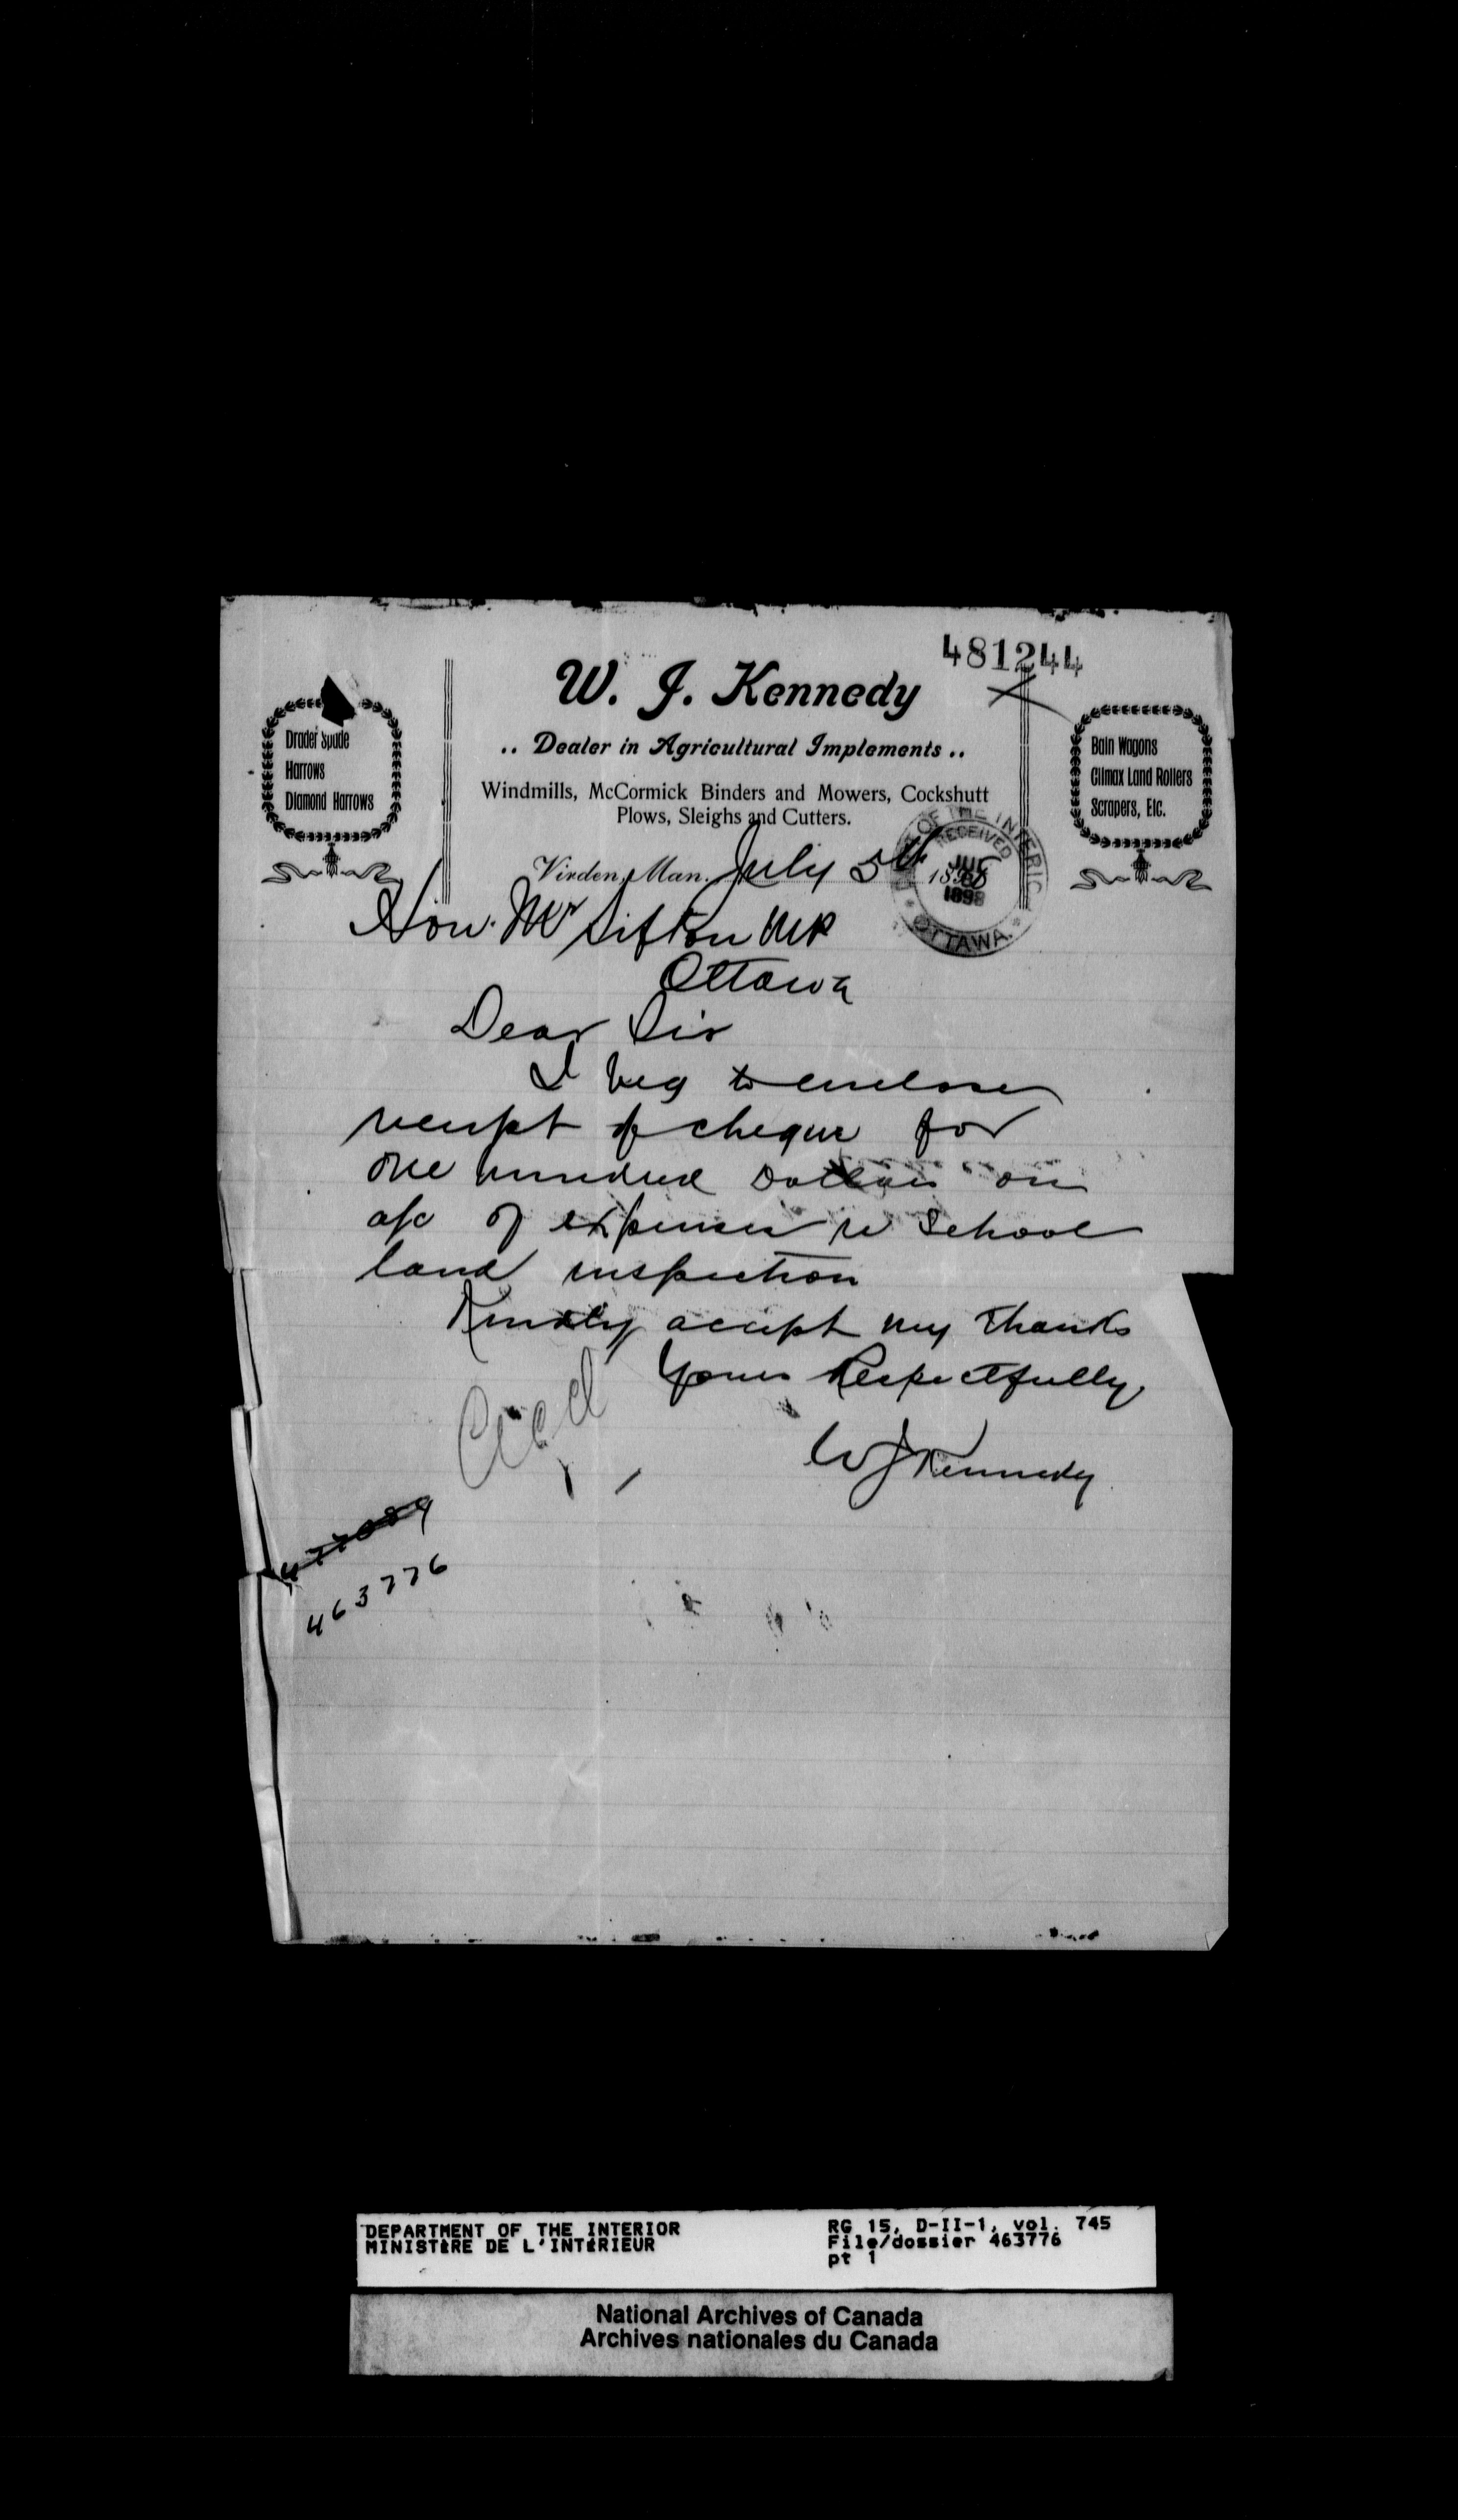 481244
W. J. Kennedy
.. Dealer in Agricultural Implements ..
Windmills, McCormick Binders and Mowers, Cockshutt
Plows, Sleighs and Cutters.
Drader Spade
Harrows
Diamond Harrows
Bain Wagons
Climax Land Rollers
Scrapers, Etc.
OF THE INTERIOR
RECEIVED
1898
OTTAWA
Virden, Man. July 5th 1898
Hon. Mr Sifton MP
Ottawa
Dear Sir
I beg to enclose
receipt of cheque for
one hundred Dollars on
a/c of expenses re School
land inspection
Kindly accept my thanks
Yours Respectfully,
WJ Kennedy
463776
DEPARTMENT OF THE INTERIOR
MINISTÈRE DE L'INTÉRIEUR
RG 15, D-II-1, vol. 745
File/dossier 463776
pt 1
National Archives of Canada
Archives nationales du Canada